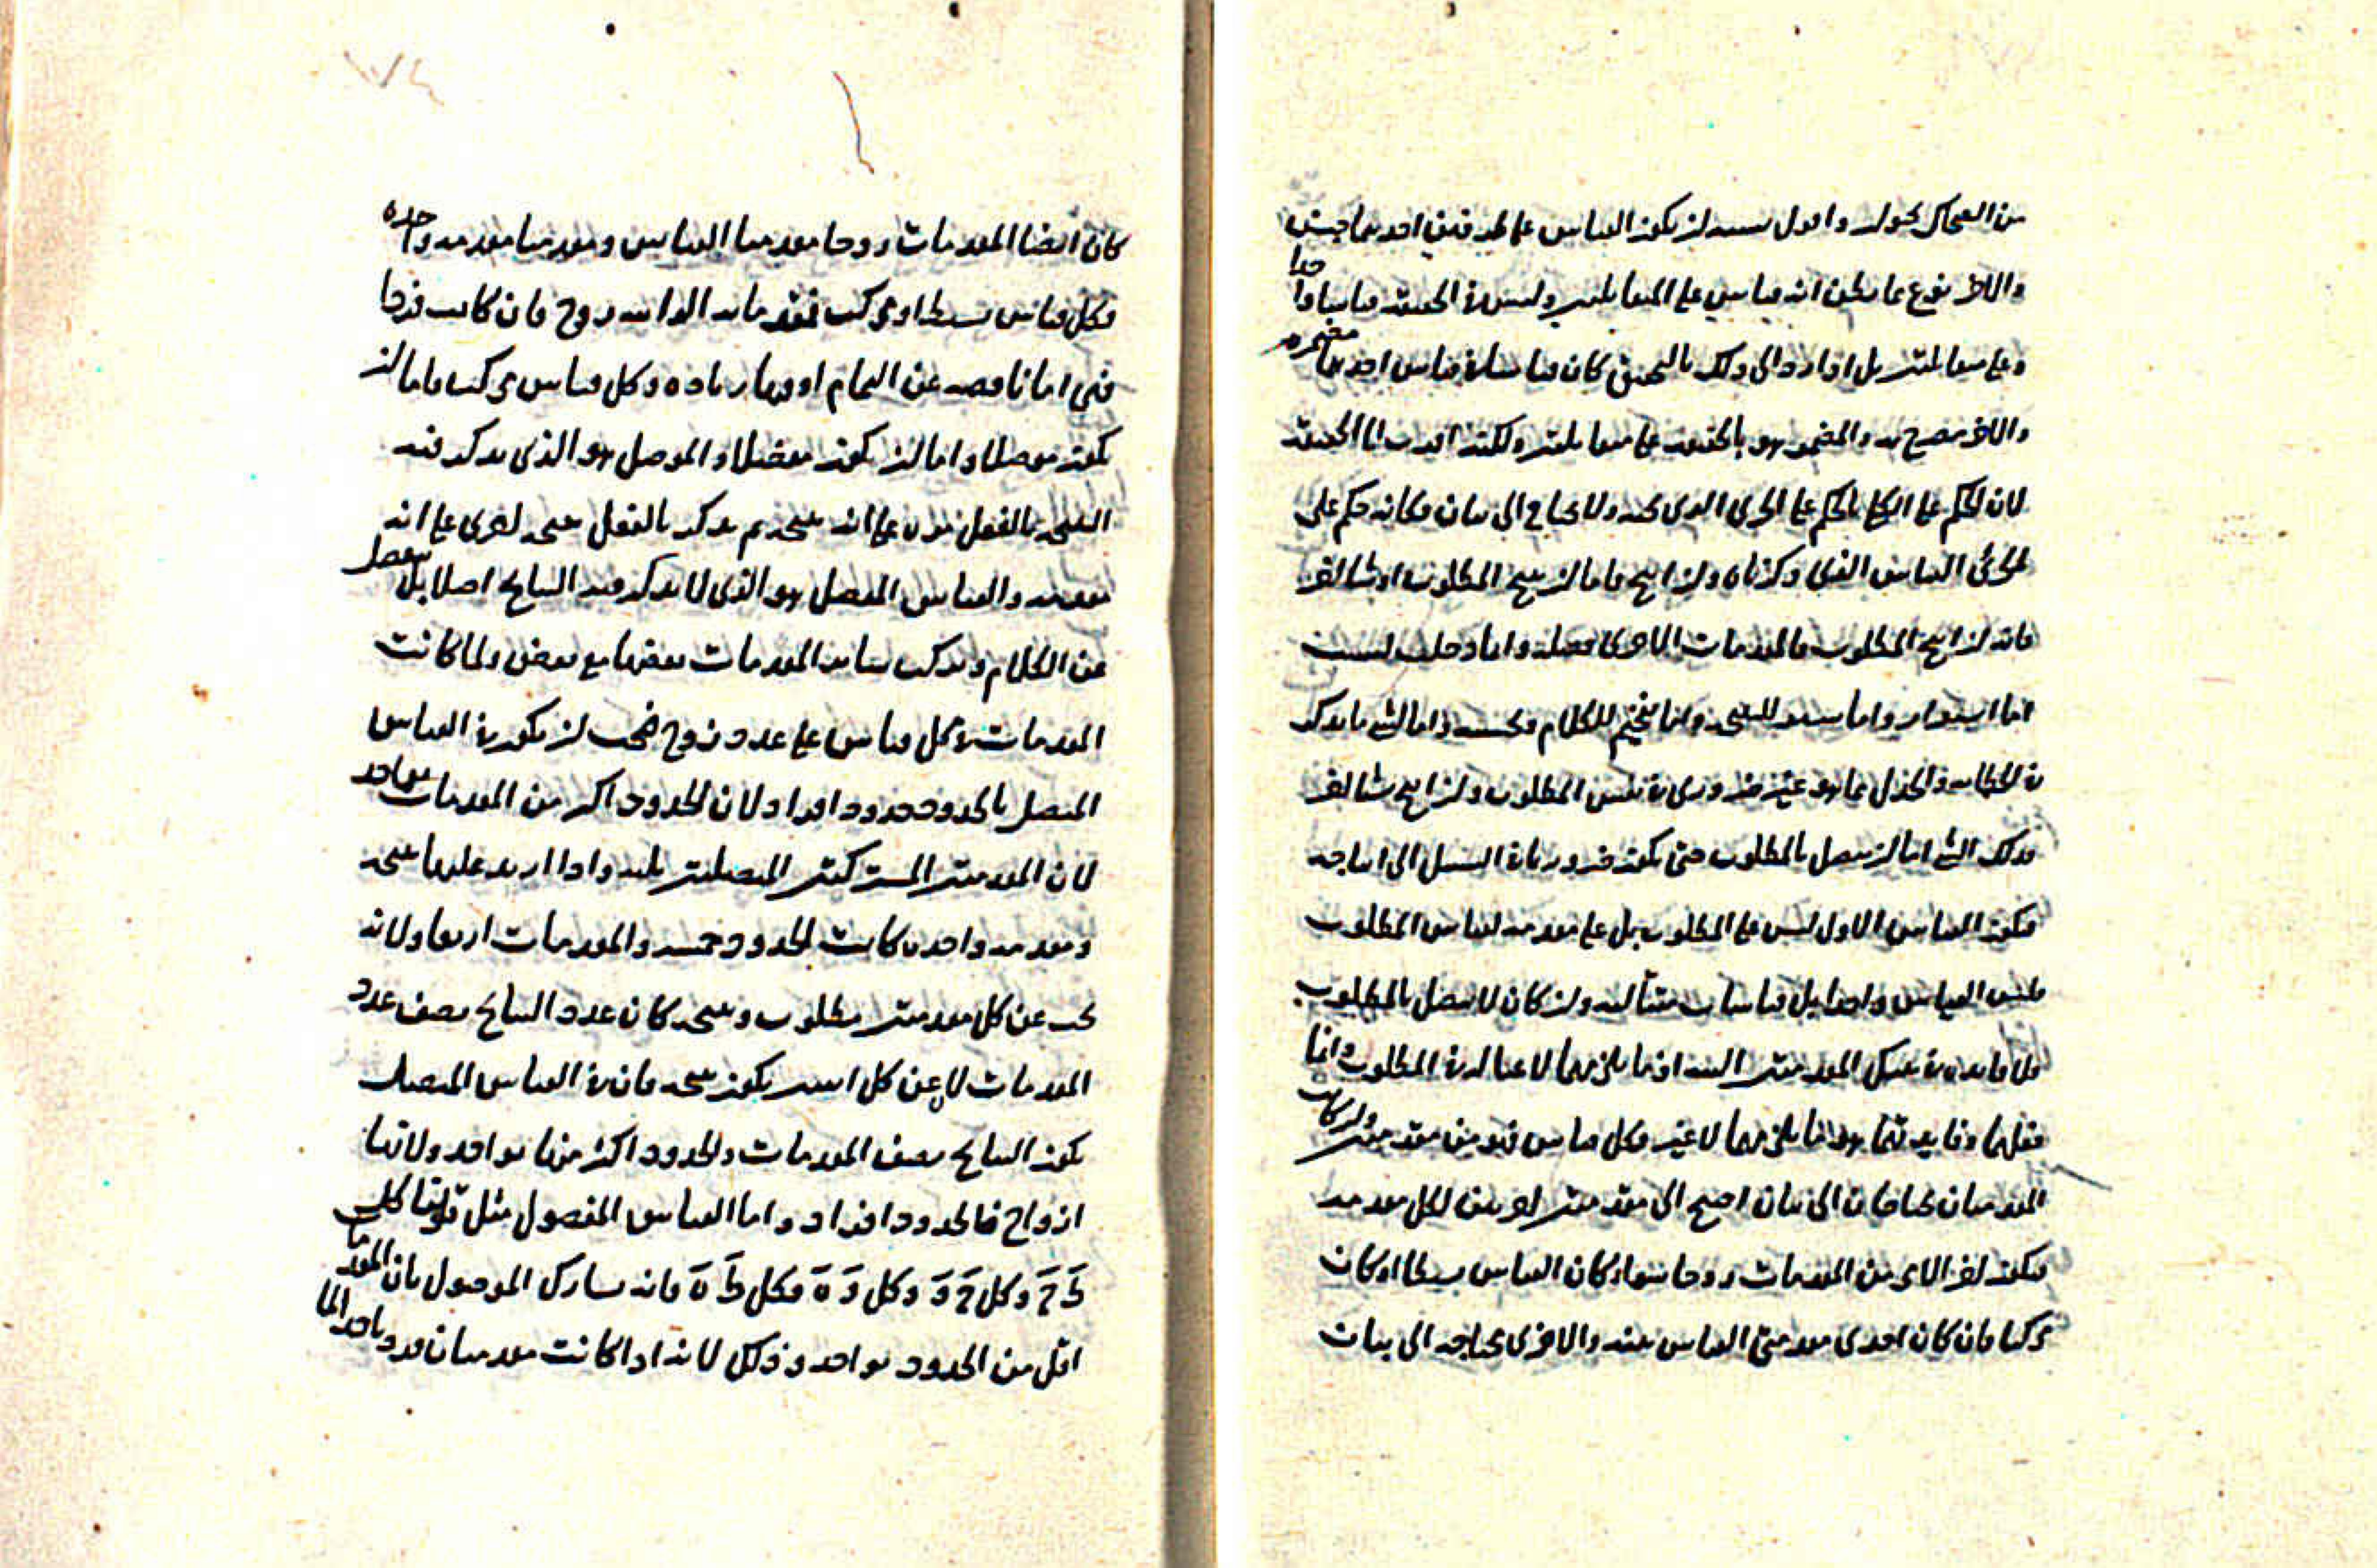 من الضحاك كحول واقول يشبه ان يكون القياس على طريقين احدهما جيش
والاخر نوع مما يظن انه قياس على المتقابلين وليس في الحقيقة قياسا واحدا
وعلى متقابلين بل اذا رد الى ذلك بالتحقيق كان قياسان قياس احدهما مضمر
والاخر مصرح به والمضمر هو بالحقيقة على متقابلين ولكنه اقرب الى الحقيقة
لان الحكم على الكلي كالحكم على الجزئي الذي تحته ولا يحتاج الى بيان فكانه حكم على
الجزئي القياس الذي ذكرناه وان انتج فاما ان ينتج المطلوب او شيئا اخر
فانه ان انتج المطلوب فالمقدمات الاخرى فضلة وانما دخلت لسبب
اما استقراء واما ستر للنتيجة واما تفخيم للكلام وتحسينه واما لشيء مما يذكر
في الخطابة والجدل مما هو غير ضروري في نفس المطلوب وان انتج شيئا اخر
فذلك الشيء اما ان يتصل بالمطلوب حتى يكون ضروريا في السبيل الى انتاجه
فيكون القياس الاول ليس على المطلوب بل على مقدمة لقياس المطلوب
فليس القياس واحدا بل قياسات متتالية وان كان لا يتصل بالمطلوب
فلا فائدة في تشكيل المقدمتين البتة اذ ما يلزمهما لا غناء له في المطلوب وانما
فعلهما وفائدتهما هو ما يلزمهما لا غير وكل قياس فهو من مقدمتين وان كانت
المقدمتان تحتاجان الى بيان احتيج الى مقدمتين اخريين لكل مقدمة
فيكون اخر الامر من المقدمات زوجا سواء كان القياس بسيطا او كان
مركبا فان كان احدى مقدمتي القياس بينة والاخرى محتاجة الى بيان
كان ايضا المقدمات زوجا مقدمتا القياس ومقدمتا مقدمة واحدة
فكل قياس بسيط او مركب فمقدماته القرائية زوج فان كانت فردا
فهي اما ناقصة عن التمام او فيها زيادة وكل قياس مركب فاما ان
يكون موصلا واما ان يكون مفصلا والموصل هو الذي يذكر فيه
النتيجة بالفعل مرة على انه نتيجة ثم يذكر بالفعل نتيجة اخرى على انه
مقدمة والقياس المفصل هو الذي لا يذكر فيه النتائج اصلا بل يفصل
عن الكلام ويركب سائر المقدمات بعضها مع بعض ولما كانت
المقدمات في كل قياس على عدد زوج فيجب ان يكون في القياس
المتصل بالحدود حدود افراد لان الحدود اكثر من المقدمات بواحد
لان المقدمتين المشتركتين المتصلتين ثلثة واذا اريد عليهما نتيجة
ومقدمة واحدة كانت الحدود خمسة والمقدمات اربعا ولانه
يجب عن كل مقدمتين مطلوب ونتيجة كان عدد النتائج نصف عدد
المقدمات لان عن كل اثنين يكون نتيجة فان في القياس المتصل
يكون النتائج نصف المقدمات والحدود اكثر منها بواحد ولانها
ازواج فالحدود افراد واما القياس المفصول مثل قولنا كل
ط ح وكل ح و وكل و ه فكل ط ه فانه يشارك الموصول بان المقدمات
اقل من الحدود بواحد وذلك لانه اذا كانت مقدمتان فرد واحد الا